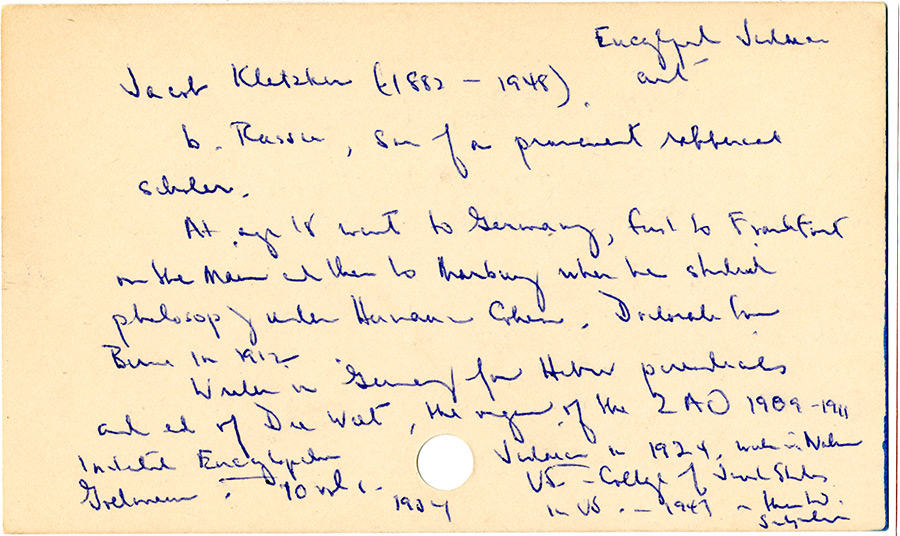 Encyclped Judaica
art
Jacob Klatzkin (1882 – 1948).
b. Russia, son of a prominent rabbinical
scholar.
At age 18 went to Germany, first to Frankfurt
on the Main and then to Marburg when he studied
philosophy under Hermann Cohen. Doctorate from
Berne in 1912.
Writer in Germany for Hebrew periodicals
and ed of Die Welt, the organ of the ZAO 1909–1911
Initiated Encyclopedia Judaica in 1924,
Goldmann. 10 vols. 1934
US – College of Jewish Studies
in US. – 1947